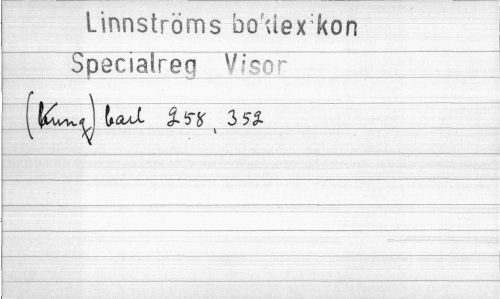 Linnströms boklexikon
Specialreg Visor
(Kung) Carl 258, 352